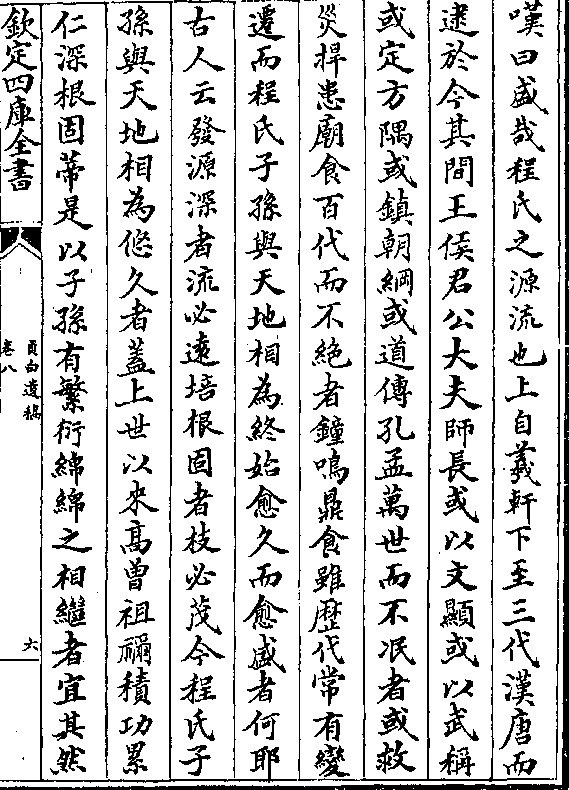 嘆曰盛哉程氏之源流也上自羲軒下至三代漢唐而
逮於今其間王侯君公大夫師長或以文顯或以武稱
或定方隅或鎮朝綱或道傳孔孟萬世而不冺者或救
災捍患廟食百代而不絶者鐘鳴鼎食雖歴代常有變
遷而程氏子孫與天地相為終始愈久而愈盛者何耶
古人云發源深者流必遠培根固者枝必茂今程氏子
孫與天地相為悠久者蓋上世以來髙曾祖禰積功累
仁深根固蒂是以子孫有繁衍綿綿之相繼者宜其然
欽定四庫全書
貞白遺稿
卷八
六